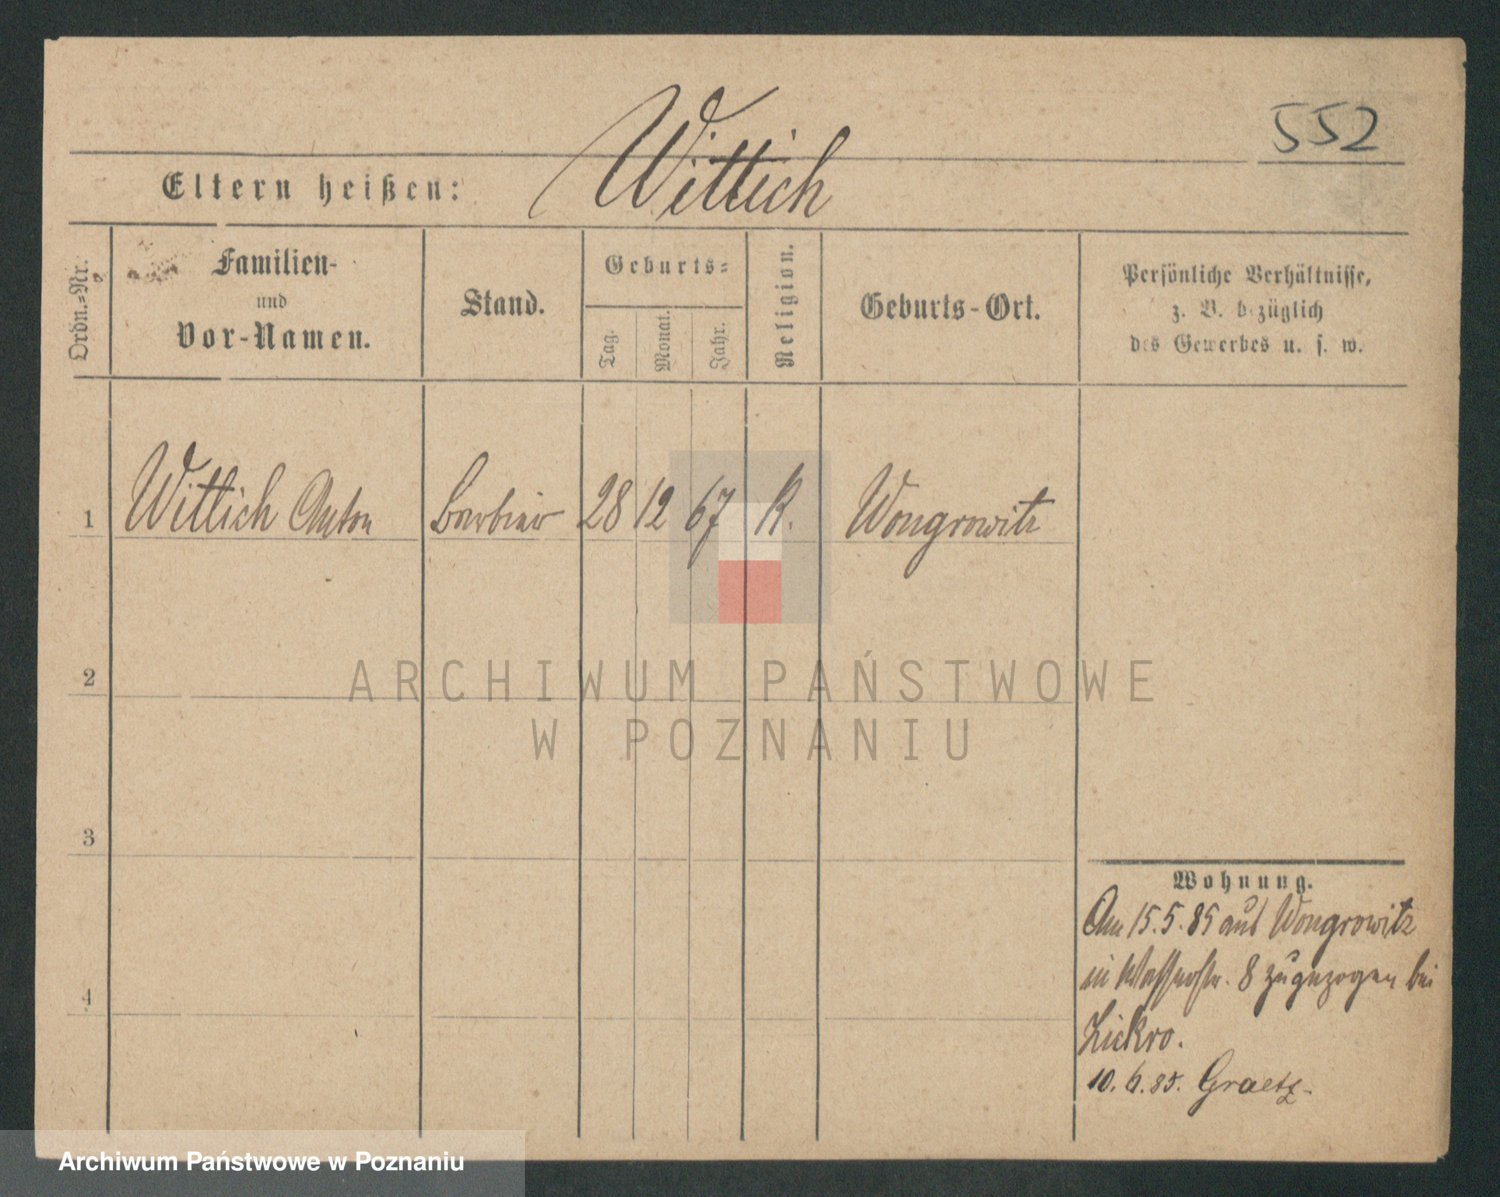 Wittich
552
Eltern heißen:
Ordn.=Nr.
Familien-
und
Vor-Namen.
Stand.
Geburts=
Tag.
Monat.
Jahr.
Religion.
Geburts-Ort.
Persönliche Verhältnisse,
z. B. bezüglich
des Gewerbes u. s. w.
1 Wittich Anton Barbier 28 12 67 K. Wongrowitz
ARCHIWUM PAŃSTWOWE
W POZNANIU
2
3
4
Wohnung.
Am 15.5.85 aus Wongrowitz
in Wasserstr. 8 zugezogen bei
10.6.85. Graetz.
Archiwum Państwowe w Poznaniu